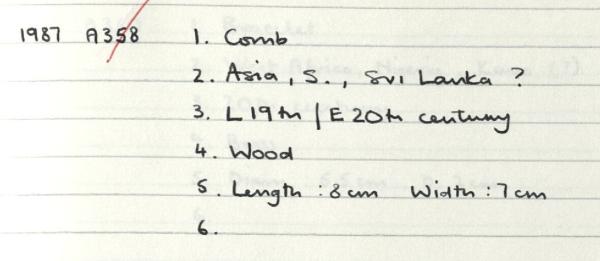 1987 A358 1. Comb
2. Asia, S., Sri Lanka ?
3. L 19th / E 20th century
4. Wood
5. Length : 8 cm Width : 7 cm
6.